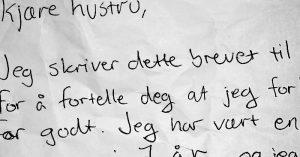 Kjære hustru,
Jeg skriver dette brevet til
for å fortelle deg at jeg for
godt. Jeg har vært en
7 år og jeg